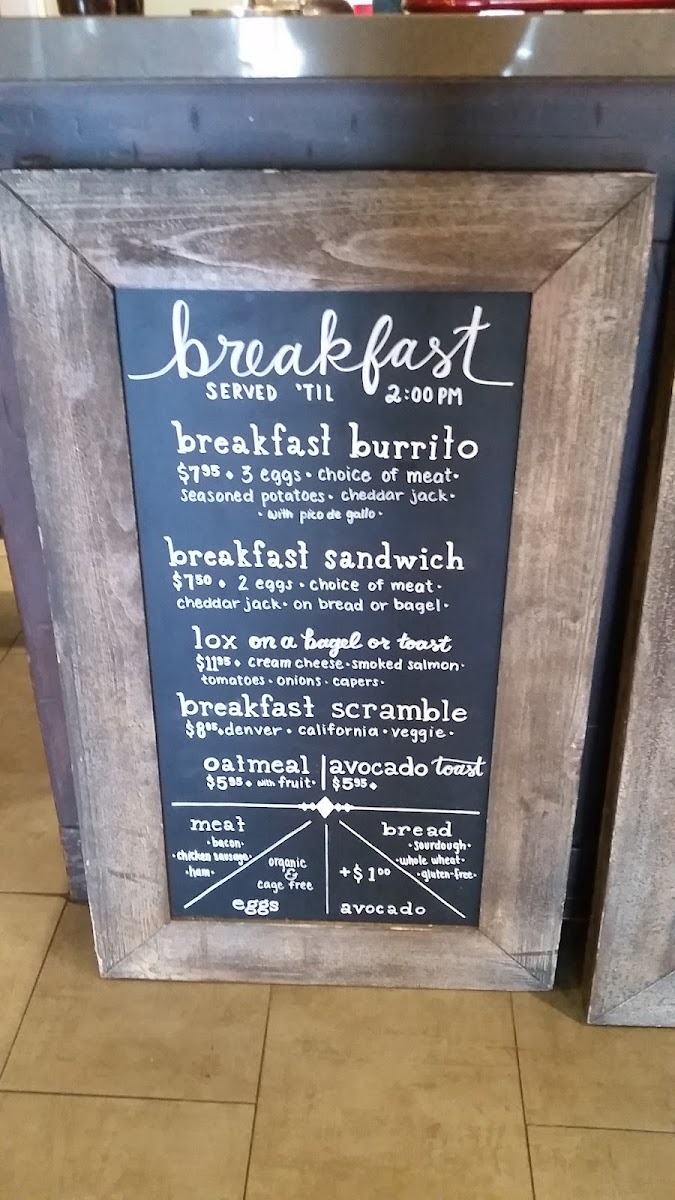 breakfast
SERVED 'TIL 2:00 PM
breakfast burrito
$7.95 • 3 eggs • choice of meat •
seasoned potatoes • cheddar jack •
• with pico de gallo •
breakfast sandwich
$7.50 • 2 eggs • choice of meat •
cheddar jack • on bread or bagel •
lox on a bagel or toast
$11.95 • cream cheese • smoked salmon •
tomatoes • onions • capers •
breakfast scramble
$8.95 • denver • california • veggie •
oatmeal
$5.95 • with fruit •
avocado toast
$5.95 •
meat
• bacon •
• chicken sausage •
• ham •
organic
&
cage free
eggs
+$1.00
avocado
bread
• sourdough •
• whole wheat •
• gluten-free •